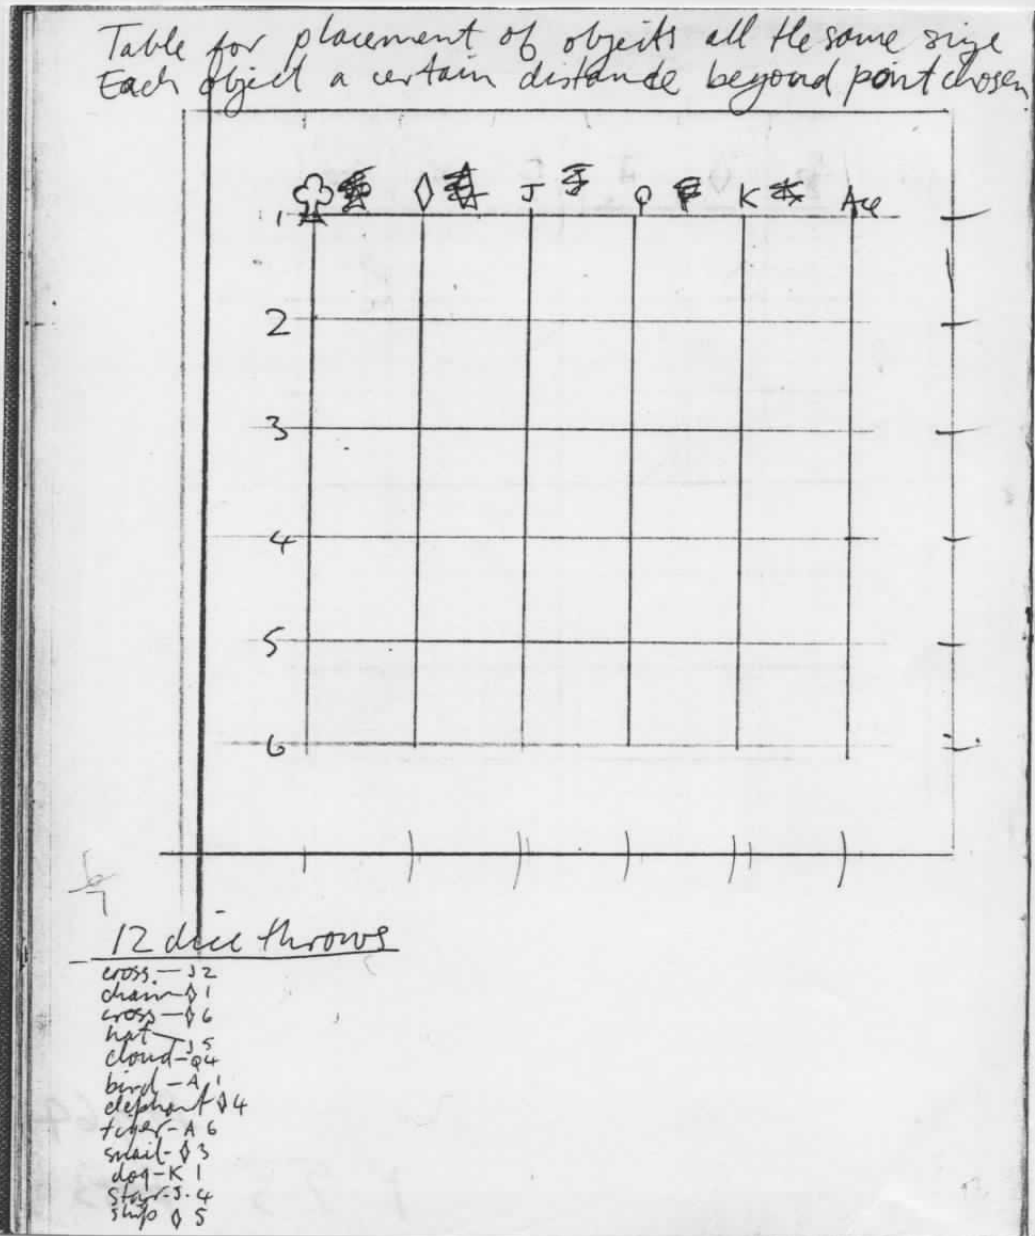 Table for placement of objects all the same size
Each object a certain distance beyond point chosen
♧ ◊ J Q K Ace
1
2
3
4
5
6
12 dice throws
cross — J 2
chain — ◊ 1
cross — ◊ 6
hat — J 5
cloud — Q 4
bird — A 1
elephant ◊ 4
tiger — A 6
snail — ◊ 3
dog — K 1
star — J 4
ship ◊ 5